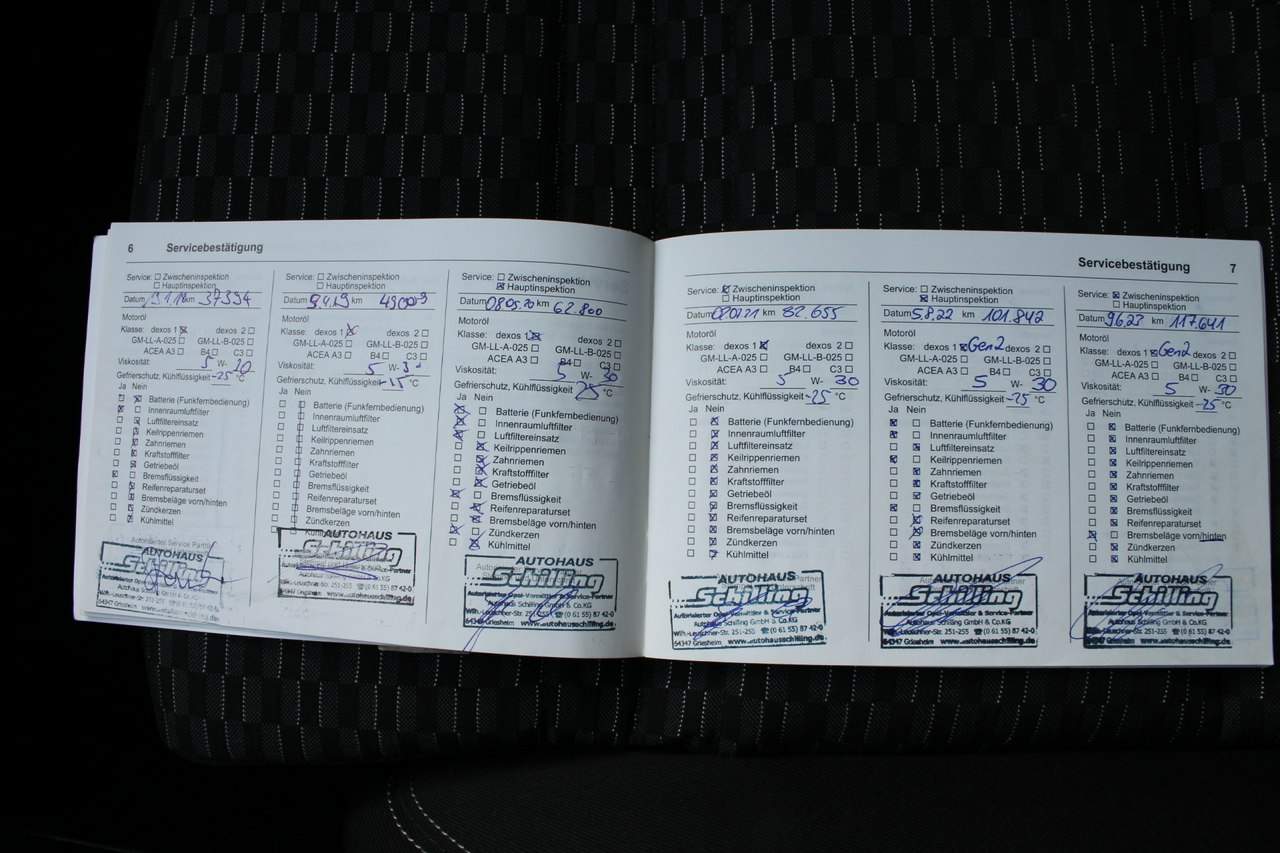 6 Servicebestätigung
Service: Zwischeninspektion
Hauptinspektion
Datum km 37334
Motoröl
Klasse: dexos 1 dexos 2
GM-LL-A-025 GM-LL-B-025
ACEA A3 B4 C3
Viskosität: 5 W-
Gefrierschutz, Kühlflüssigkeit -25 °C
Ja Nein
Batterie (Funkfernbedienung)
Innenraumluftfilter
Luftfiltereinsatz
Keilrippenriemen
Zahnriemen
Kraftstofffilter
Getriebeöl
Bremsflüssigkeit
Reifenreparaturset
Bremsbeläge vorn/hinten
Zündkerzen
Kühlmittel
AUTOHAUS
Schilling
Service: Zwischeninspektion
Hauptinspektion
Datum km
Motoröl
Klasse: dexos 1 dexos 2
GM-LL-A-025 GM-LL-B-025
ACEA A3 B4 C3
Viskosität: 5 W-
Gefrierschutz, Kühlflüssigkeit °C
Ja Nein
Batterie (Funkfernbedienung)
Innenraumluftfilter
Luftfiltereinsatz
Keilrippenriemen
Zahnriemen
Kraftstofffilter
Getriebeöl
Bremsflüssigkeit
Reifenreparaturset
Bremsbeläge vorn/hinten
Zündkerzen
AUTOHAUS
Schilling
64347 Griesheim www.autohausschilling.de
Service: Zwischeninspektion
Hauptinspektion
Datum 08.05.20 km 62.800
Motoröl
Klasse: dexos 1 dexos 2
GM-LL-A-025 GM-LL-B-025
ACEA A3 B4 C3
Viskosität: 5 W- 30
Gefrierschutz, Kühlflüssigkeit 25 °C
Ja Nein
Batterie (Funkfernbedienung)
Innenraumluftfilter
Luftfiltereinsatz
Keilrippenriemen
Zahnriemen
Kraftstofffilter
Getriebeöl
Bremsflüssigkeit
Reifenreparaturset
Bremsbeläge vorn/hinten
Zündkerzen
Kühlmittel
AUTOHAUS
Schilling
Autorisierter Opel-Vermittler & Service-Partner
Autohaus Schilling GmbH & Co.KG
Wilh.-Leuschner-Str. 251-255 ☎(0 61 55) 87 42-0
64347 Griesheim www.autohausschilling.de
Servicebestätigung 7
Service: Zwischeninspektion
Hauptinspektion
Datum km 82.655
Motoröl
Klasse: dexos 1 dexos 2
GM-LL-A-025 GM-LL-B-025
ACEA A3 B4 C3
Viskosität: 5 W- 30
Gefrierschutz, Kühlflüssigkeit -25 °C
Ja Nein
Batterie (Funkfernbedienung)
Innenraumluftfilter
Luftfiltereinsatz
Keilrippenriemen
Zahnriemen
Kraftstofffilter
Getriebeöl
Bremsflüssigkeit
Reifenreparaturset
Bremsbeläge vorn/hinten
Zündkerzen
Kühlmittel
AUTOHAUS
Schilling
Autorisierter Opel-Vermittler & Service-Partner
Autohaus Schilling GmbH & Co.KG
Wilh.-Leuschner-Str. 251-255 ☎(0 61 55) 87 42-0
64347 Griesheim www.autohausschilling.de
Service: Zwischeninspektion
Hauptinspektion
Datum 5.8.22 km 101.842
Motoröl
Klasse: dexos 1 Gen2 dexos 2
GM-LL-A-025 GM-LL-B-025
ACEA A3 B4 C3
Viskosität: 5 W- 30
Gefrierschutz, Kühlflüssigkeit -25 °C
Ja Nein
Batterie (Funkfernbedienung)
Innenraumluftfilter
Luftfiltereinsatz
Keilrippenriemen
Zahnriemen
Kraftstofffilter
Getriebeöl
Bremsflüssigkeit
Reifenreparaturset
Bremsbeläge vorn/hinten
Zündkerzen
Kühlmittel
AUTOHAUS
Schilling
Autorisierter Opel-Vermittler & Service-Partner
Autohaus Schilling GmbH & Co.KG
Wilh.-Leuschner-Str. 251-255 ☎(0 61 55) 87 42-0
64347 Griesheim www.autohausschilling.de
Service: Zwischeninspektion
Hauptinspektion
Datum 9.6.23 km 117.641
Motoröl
Klasse: dexos 1 Gen2 dexos 2
GM-LL-A-025 GM-LL-B-025
ACEA A3 B4 C3
Viskosität: 5 W- 30
Gefrierschutz, Kühlflüssigkeit -25 °C
Ja Nein
Batterie (Funkfernbedienung)
Innenraumluftfilter
Luftfiltereinsatz
Keilrippenriemen
Zahnriemen
Kraftstofffilter
Getriebeöl
Bremsflüssigkeit
Reifenreparaturset
Bremsbeläge vorn/hinten
Zündkerzen
Kühlmittel
AUTOHAUS
Schilling
Autorisierter Opel-Vermittler & Service-Partner
Autohaus Schilling GmbH & Co.KG
Wilh.-Leuschner-Str. 251-255 ☎(0 61 55) 87 42-0
64347 Griesheim www.autohausschilling.de